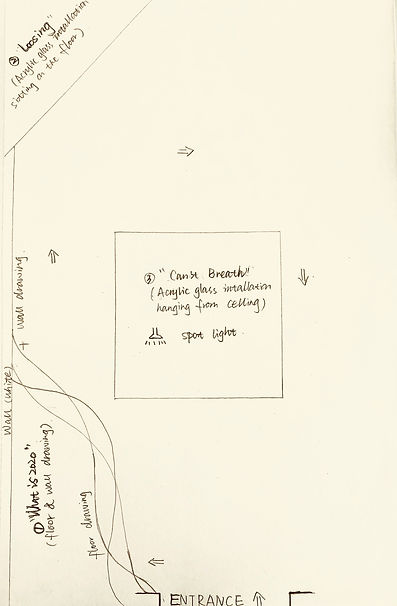 ② "Loosing"
(Acrylic glass installation
sitting on the floor)
+ wall drawing.
Wall (white)
① "What is 2020"
(floor & wall drawing)
floor drawing
③ "Can't Breath"
(Acrylic glass intallation
hanging from celling)
spot light
ENTRANCE